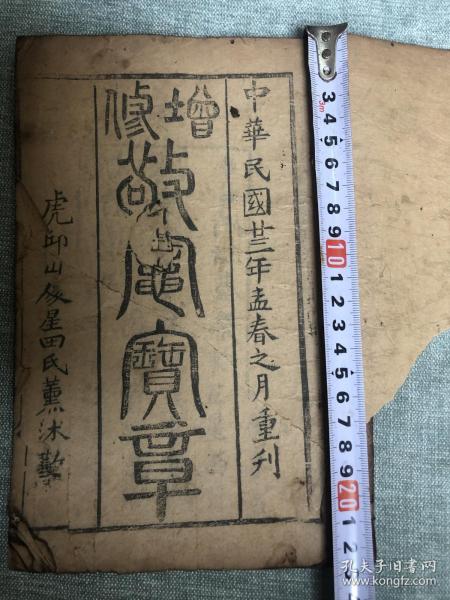 中華民國廿三年孟春之月重刊
增修
敬竈寶章
虎邱山星田氏薰沐
3m
3 4 5 6 7 8 9 10 1 2 3 4 5 6 7 8 9 20 1 2 3
孔夫子旧书网
kongfz.com